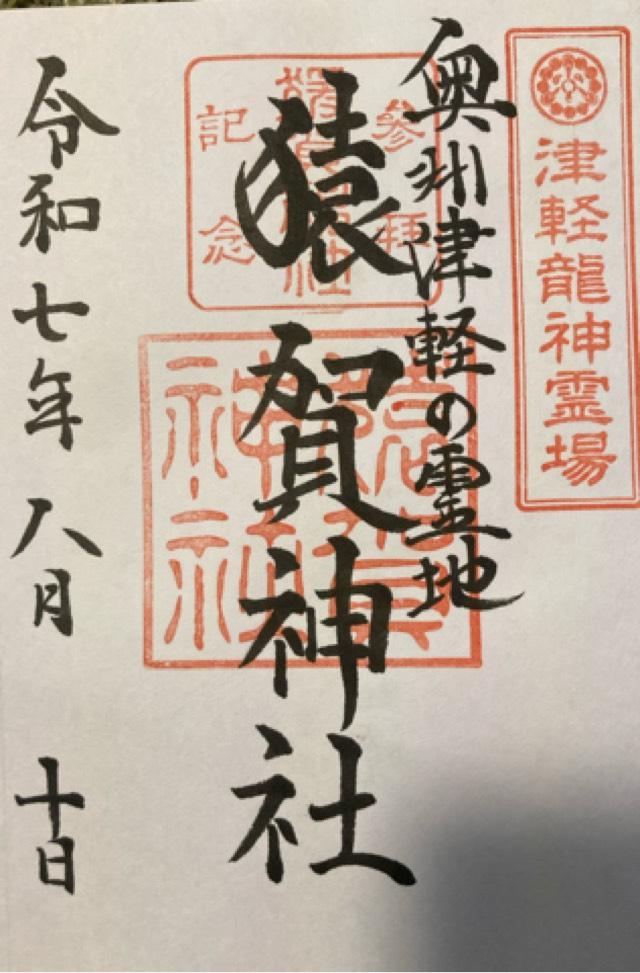 津軽龍神霊場
奥州津軽の霊地
参拝
記念
猿賀神社
猿賀神社
令和七年八月十日